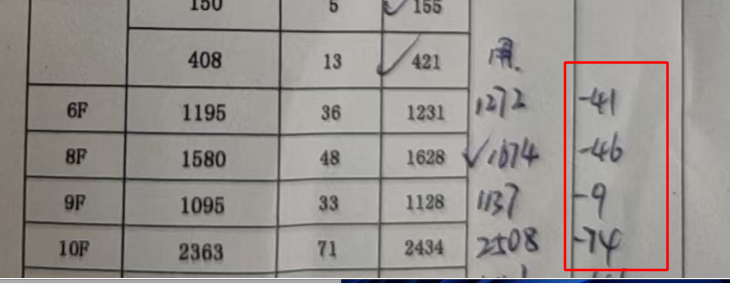 150 5 155
408 13 421 用.
6F 1195 36 1231 1272 -41
8F 1580 48 1628 1674 -46
9F 1095 33 1128 1137 -9
10F 2363 71 2434 2508 -74